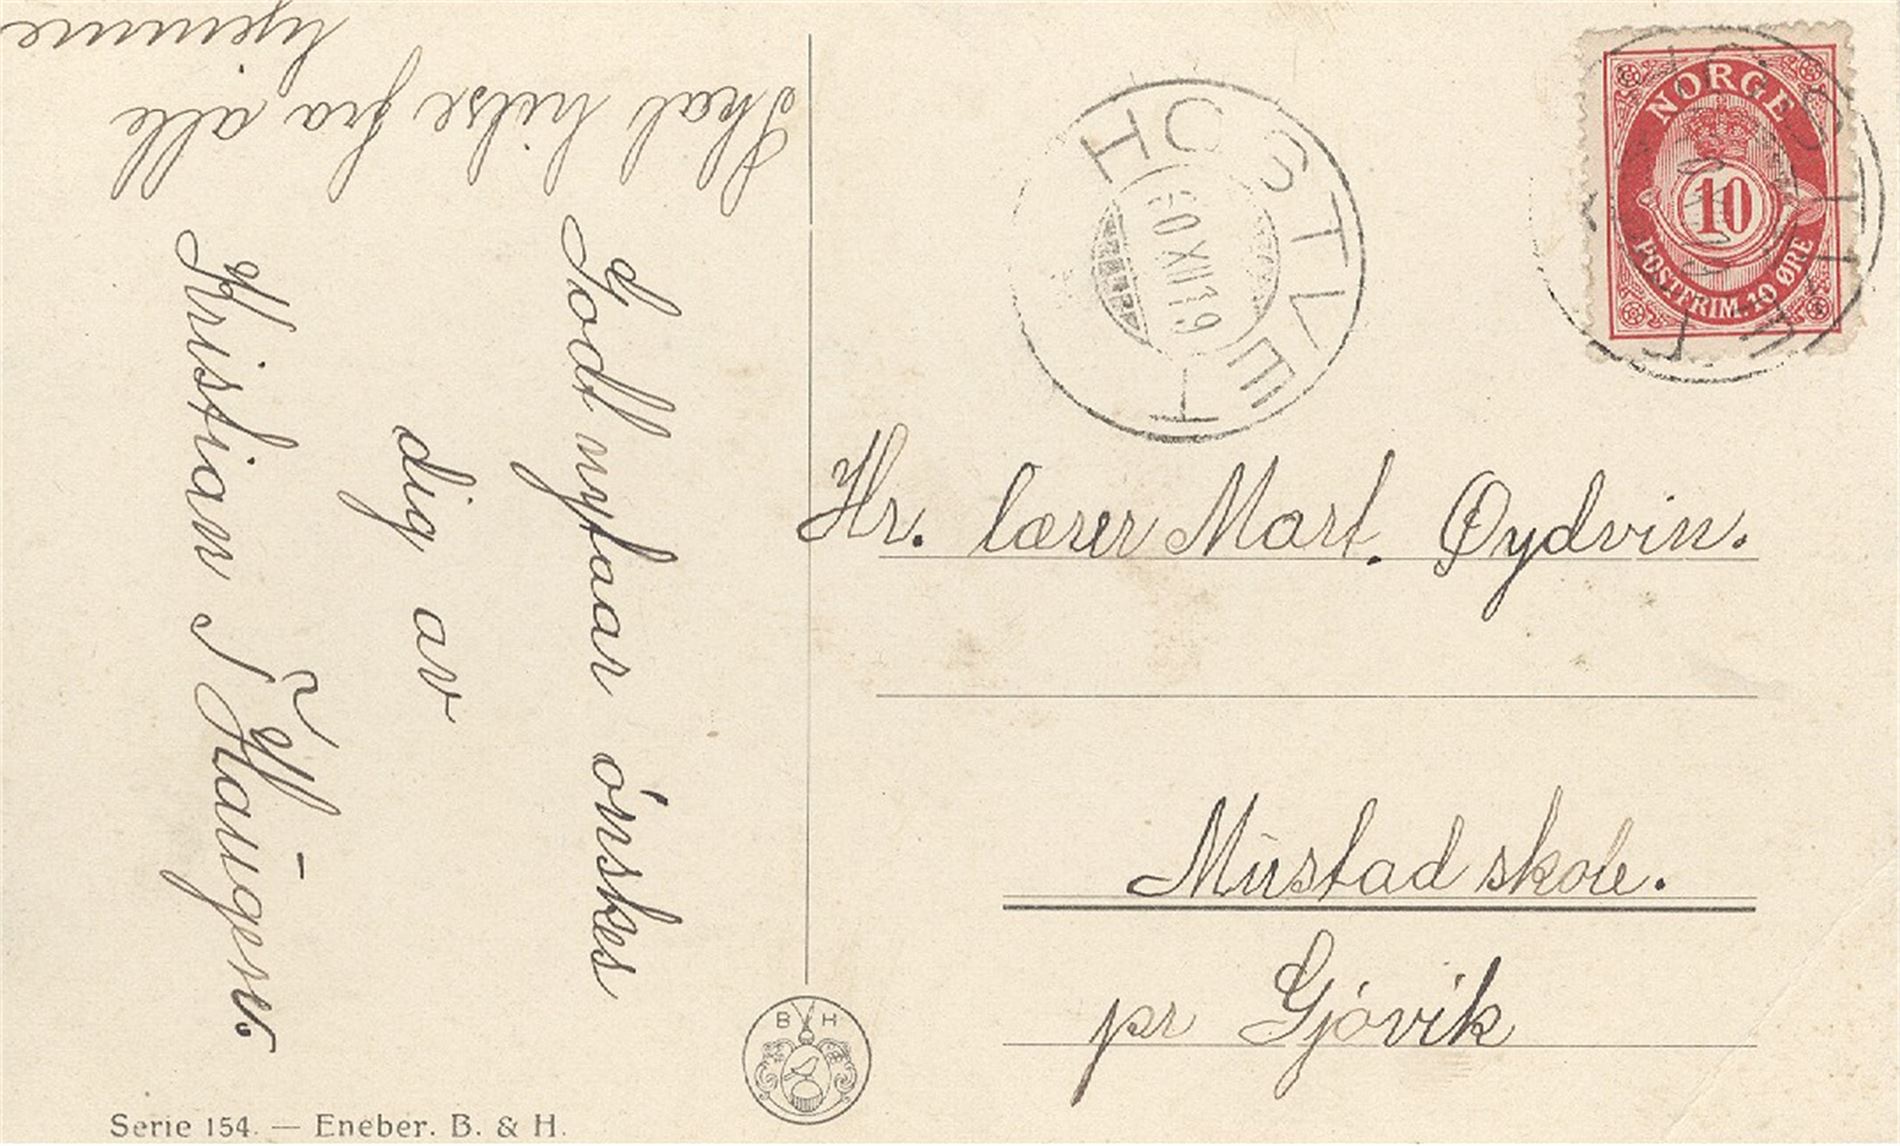 Godt nytaar önskes
dig av
Kristian J Haugene.
Skal hilse fra alle
hjemme
HOSTLEH
6 31 XII 09
NORGE
10
POSTFRIM. 10 ØRE
Hr. lærer Mart. Øydvin.
Mustad skole.
pr Gjövik
B H
Serie 154. — Eneber. B. & H.